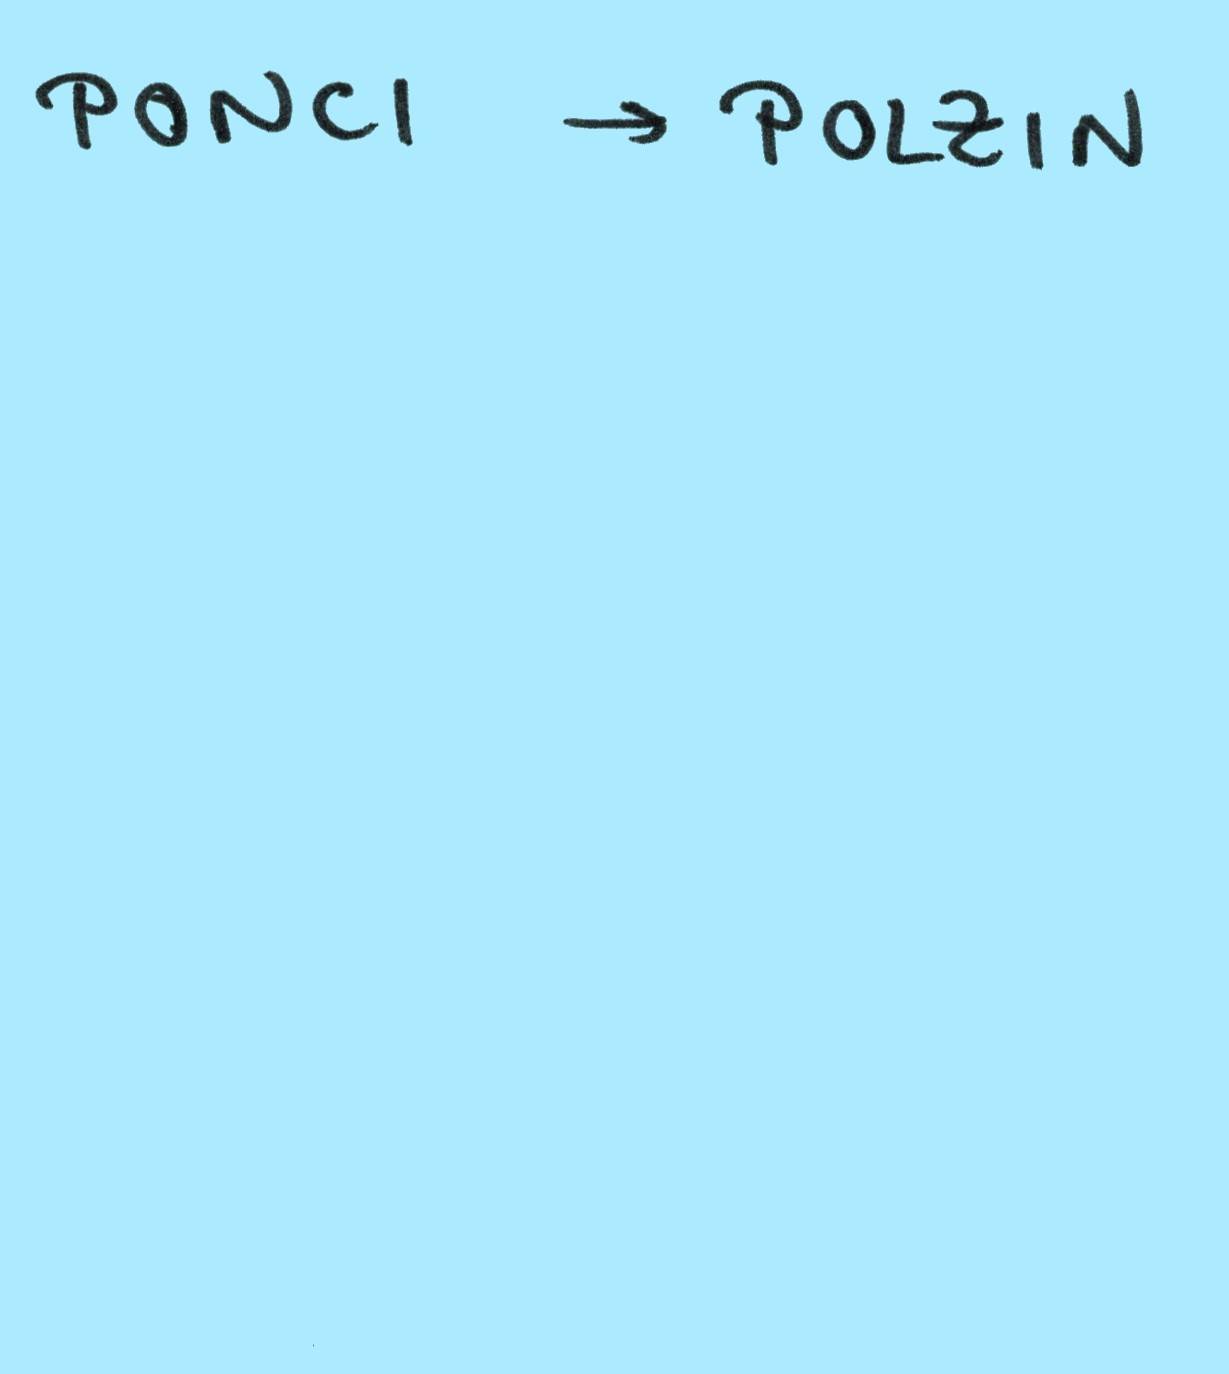 PONCI → POLZIN